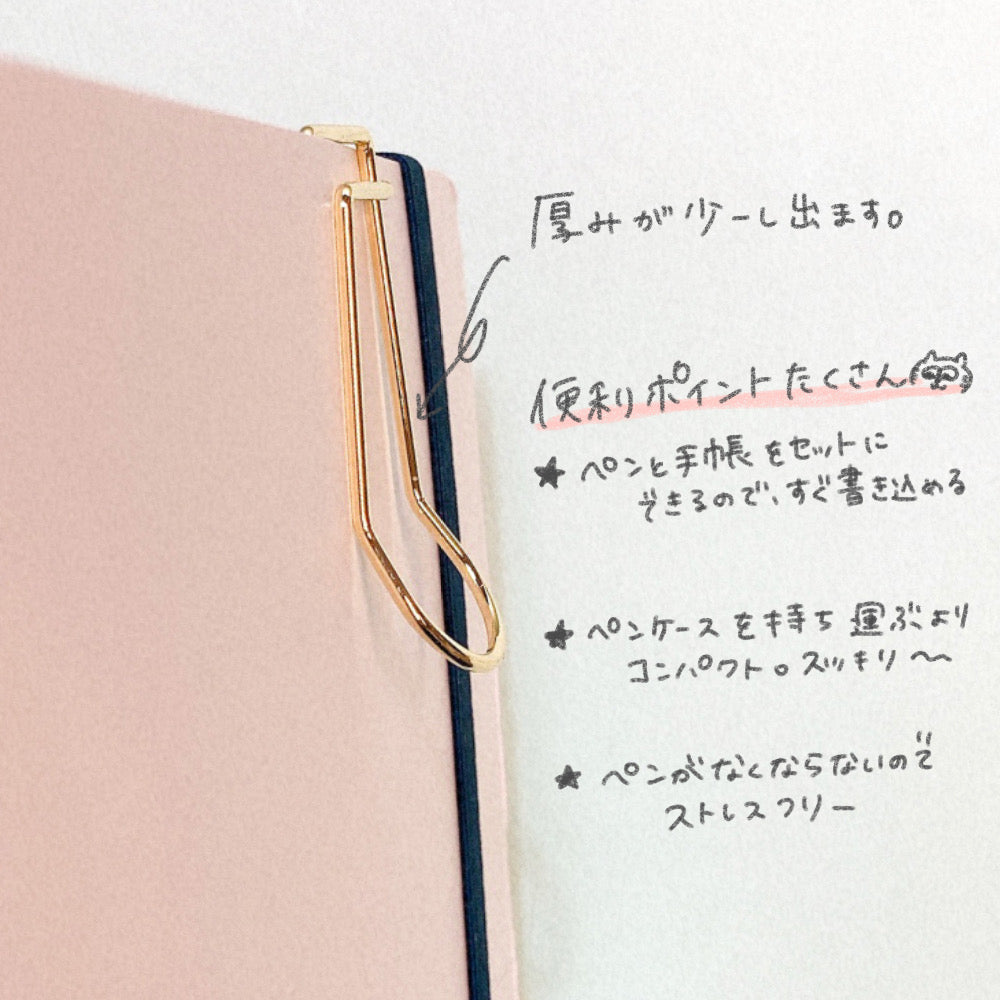 厚みが少ーし出ます。
便利ポイントたくさん
★ ペンと手帳をセットに
できるので、すぐ書き込める
★ ペンケースを持ち運ぶより
コンパクト。スッキリ〜
★ ペンがなくならないので
ストレスフリー